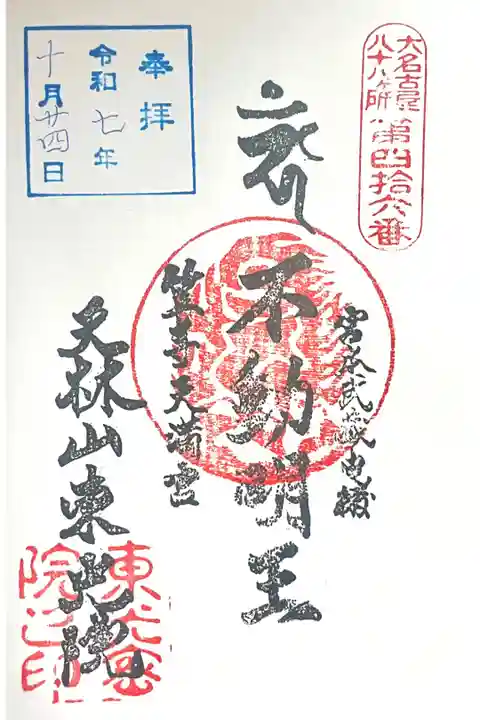 大名古屋
八十八ヶ所
第四拾六番
宮本武蔵由縁
不動明王
笠寺天満宮
天林山東光院
奉拝
令和七年
十月廿四日
東光
院之印